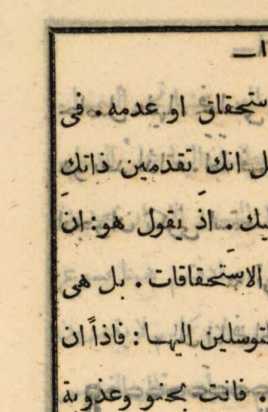 ستحقاق او عدمه . فى
ل انك تقدمين ذاتك
يك . اذ يقول هو : ان
الاستحقاقات . بل هى
توسلين اليها : فاذاً ان
. فانت بحنو وعذوبة